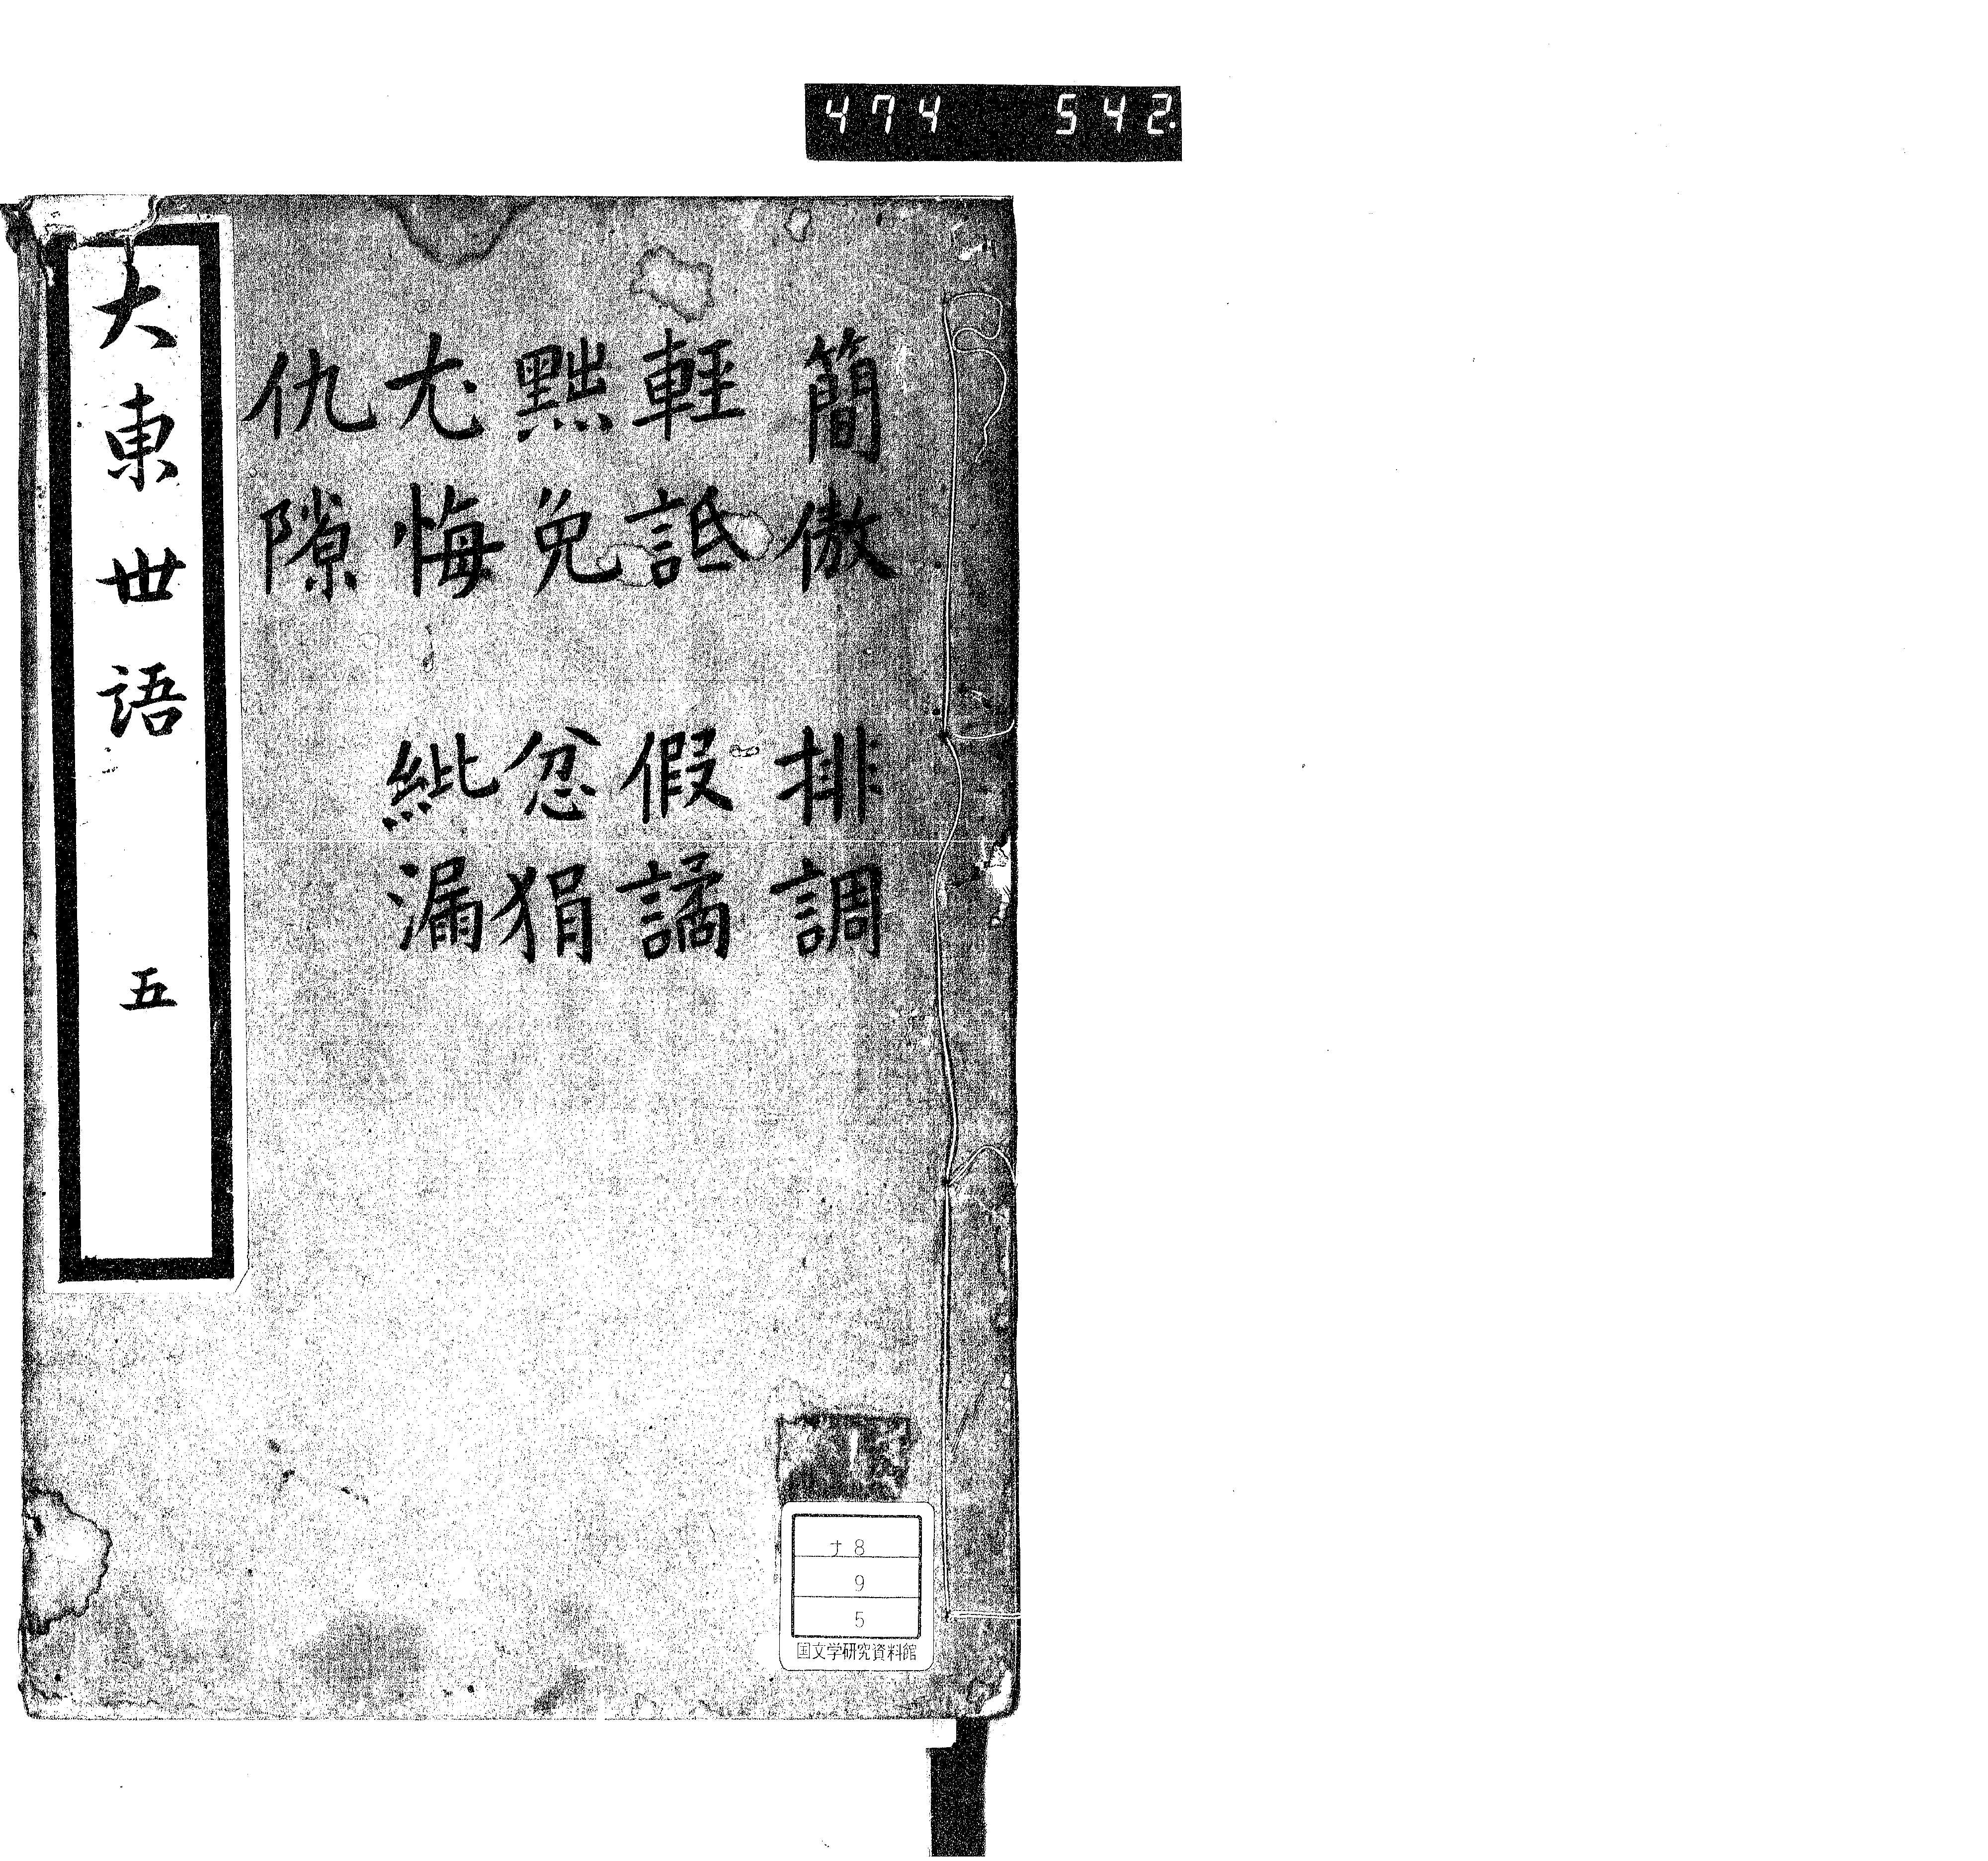 474 542
簡傲 排調
輕詆 假譎
黜免 忿狷
尤悔 紕漏
仇隙
大東世語 五
ナ8
9
5
国文学研究資料館